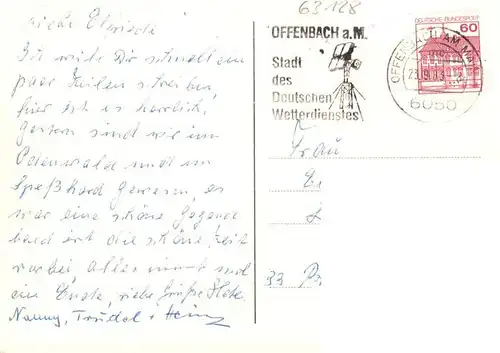 63128
Liebe
Ich will Dir schnell ein
paar Zeilen schreiben,
hier ist es herrlich,
Gestern sind wir im
Odenwald und im
Speßhard gewesen, es
war eine schöne Gegend
bald ist die schöne Zeit
vorbei, alles nimmt mal
ein Ende, viele Grüße
Nanny, Trudel + Heinz
OFFENBACH a.M.
Stadt
des
Deutschen
Wetterdienstes
OFFENBACH AM MAIN
6050
DEUTSCHE BUNDESPOST
60
Frau
33